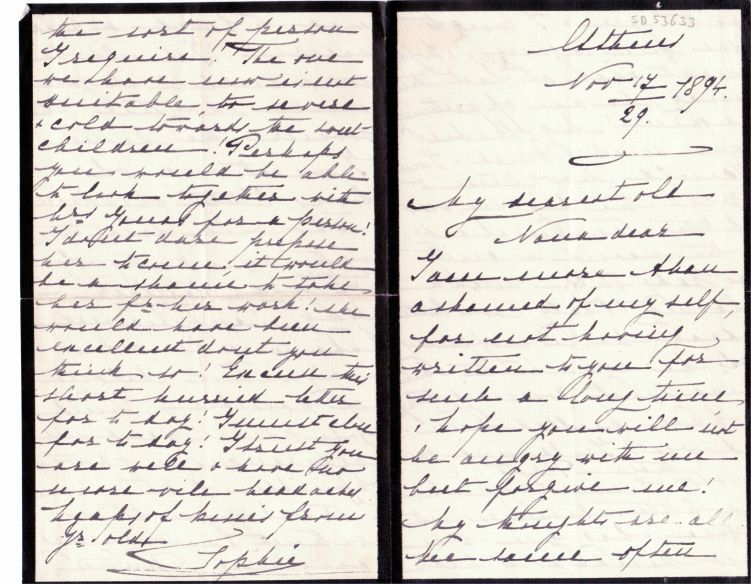 SD 53633
Athens
Nov 17 1894.
29.
My dearest old
Nona dear
I am more than
ashamed of my self,
for not having
written to you for
such a long time,
I hope you will not
be angry with me
but forgive me!
My thoughts are all
the same often
the sort of person
I require! The one
we have now is not
suitable, too severe
& cold towards the sweet
children! Perhaps
you would be able
to look together with
Mrs for a person!
I don't dare propose
her to come, it would
be a shame to take
her fr her work! She
would have been
excellent dont you
think so! Excuse this
short hurried letter
for to day! I must close
for to day! I trust you
are well & have no
more vile headaches
Heaps of kisses from
yr old
Sophie